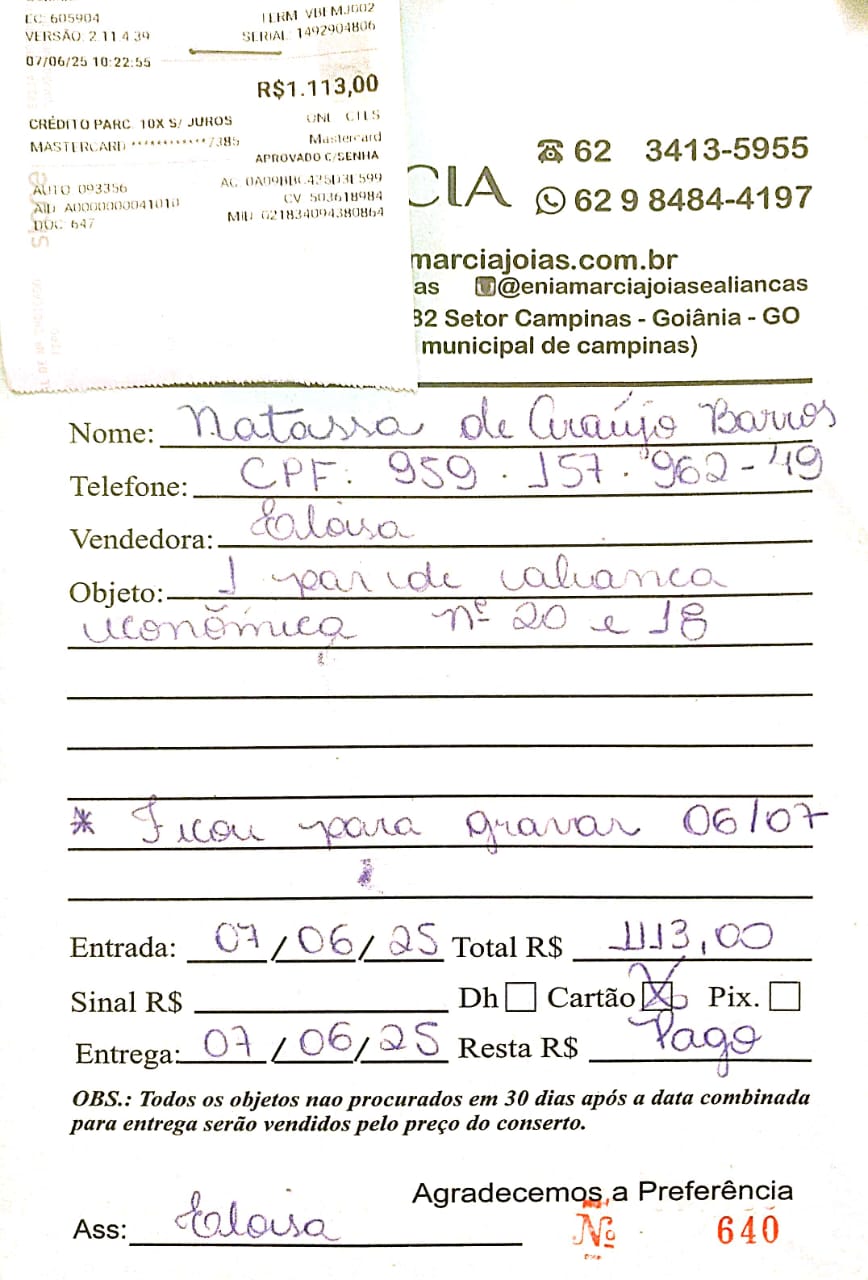 EC: 605904 TERM: VBEMJ002
VERSÃO: 2.11.4.39 SERIAL: 1492904806
07/06/25 10:22:55
R$1.113,00
CRÉDITO PARC. 10X S/ JUROS ONL CTLS
MASTERCARD ************7385 Mastercard
APROVADO C/SENHA
AUTO: 093356
AID: A0000000041010 CV: 503618984
DOC: 647 MID: 021834094380864
CIA
62 3413-5955
62 9 8484-4197
marciajoias.com.br
as @eniamarciajoiasealiancas
82 Setor Campinas - Goiânia - GO
municipal de campinas)
Nome: Natassa de Araújo Barros
Telefone: CPF: 959.157.962-49
Vendedora: Eloisa
Objeto: 1 par de alianca
econômica nº 20 e 18
* Ficou para gravar 06/07
Entrada: 07/06/25 Total R$ 1113,00
Sinal R$ Dh Cartão X Pix.
Entrega: 07/06/25 Resta R$ Pago
OBS.: Todos os objetos nao procurados em 30 dias após a data combinada
para entrega serão vendidos pelo preço do conserto.
Agradecemos a Preferência
Ass: Eloisa Nº 640